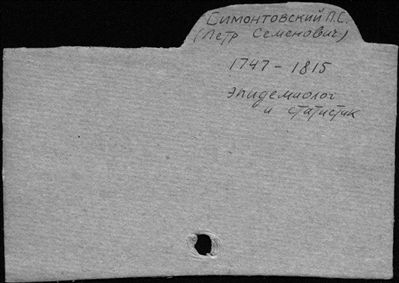 Симонтовский П.С.
(Петр Семенович)
1747 - 1815
эпидемиолог
и статистик